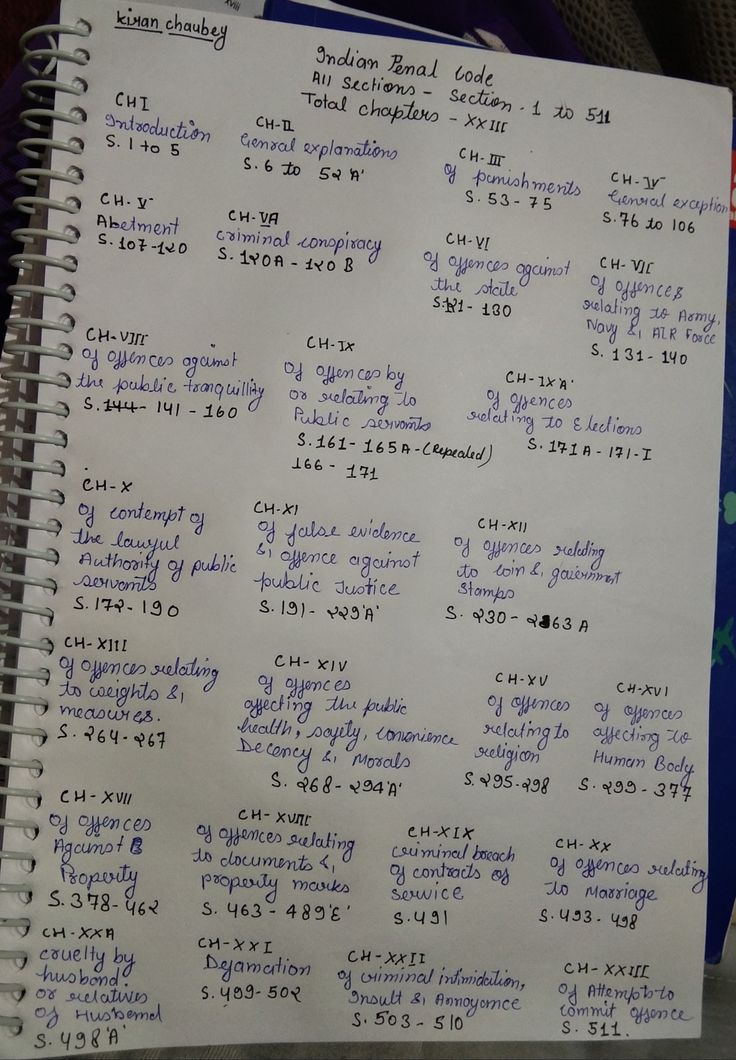 xviii
Kiran Chaubey
Indian Penal Code
All Sections - Section - 1 to 511
Total chapters - XXIII
CH I
Introduction
S. 1 to 5
CH-II
Genral explanations
S. 6 to 52 'A'
CH-III
of punishments
S. 53 - 75
CH-IV
Genral exception
S. 76 to 106
CH-V
Abetment
S. 107-120
CH-VA
Criminal conspiracy
S. 120A - 120 B
CH-VI
of offences against
the state
S. 121 - 130
CH-VII
of offences
relating to Army,
Navy & AIR Force
S. 131 - 140
CH-VIII
of offences against
the public tranquillity
S. 144 - 141 - 160
CH-IX
of offences by
or relating to
Public servants
S. 161 - 165A - (repealed)
166 - 171
CH-IX 'A'
of offences
relating to Elections
S. 171A - 171-I
CH-X
of contempt of
the lawful
Authority of public
servants
S. 172 - 190
CH-XI
of false evidence
& offence against
public Justice
S. 191 - 229 'A'
CH-XII
of offences relating
to Coin & government
Stamps
S. 230 - 263 A
CH-XIII
of offences relating
to weights &
measures.
S. 264 - 267
CH-XIV
of offences
affecting the public
health, safety, convenience
Decency & Morals
S. 268 - 294 'A'
CH-XV
of offences
relating to
religion
S. 295-298
CH-XVI
of offences
affecting to
Human Body
S. 299 - 377
CH-XVII
of offences
Against
Property
S. 378 - 462
CH-XVIII
of offences relating
to documents &
property marks
S. 463 - 489 'E'
CH-XIX
Criminal breach
of contracts of
service
S. 491
CH-XX
of offences relating
to Marriage
S. 493 - 498
CH-XXA
cruelty by
husband.
or relatives
of Husband
S. 498 'A'
CH-XXI
Defamation
S. 499 - 502
CH-XXII
of criminal intimidation,
Insult & Annoyance
S. 503 - 510
CH-XXIII
of Attempts to
commit offence
S. 511.